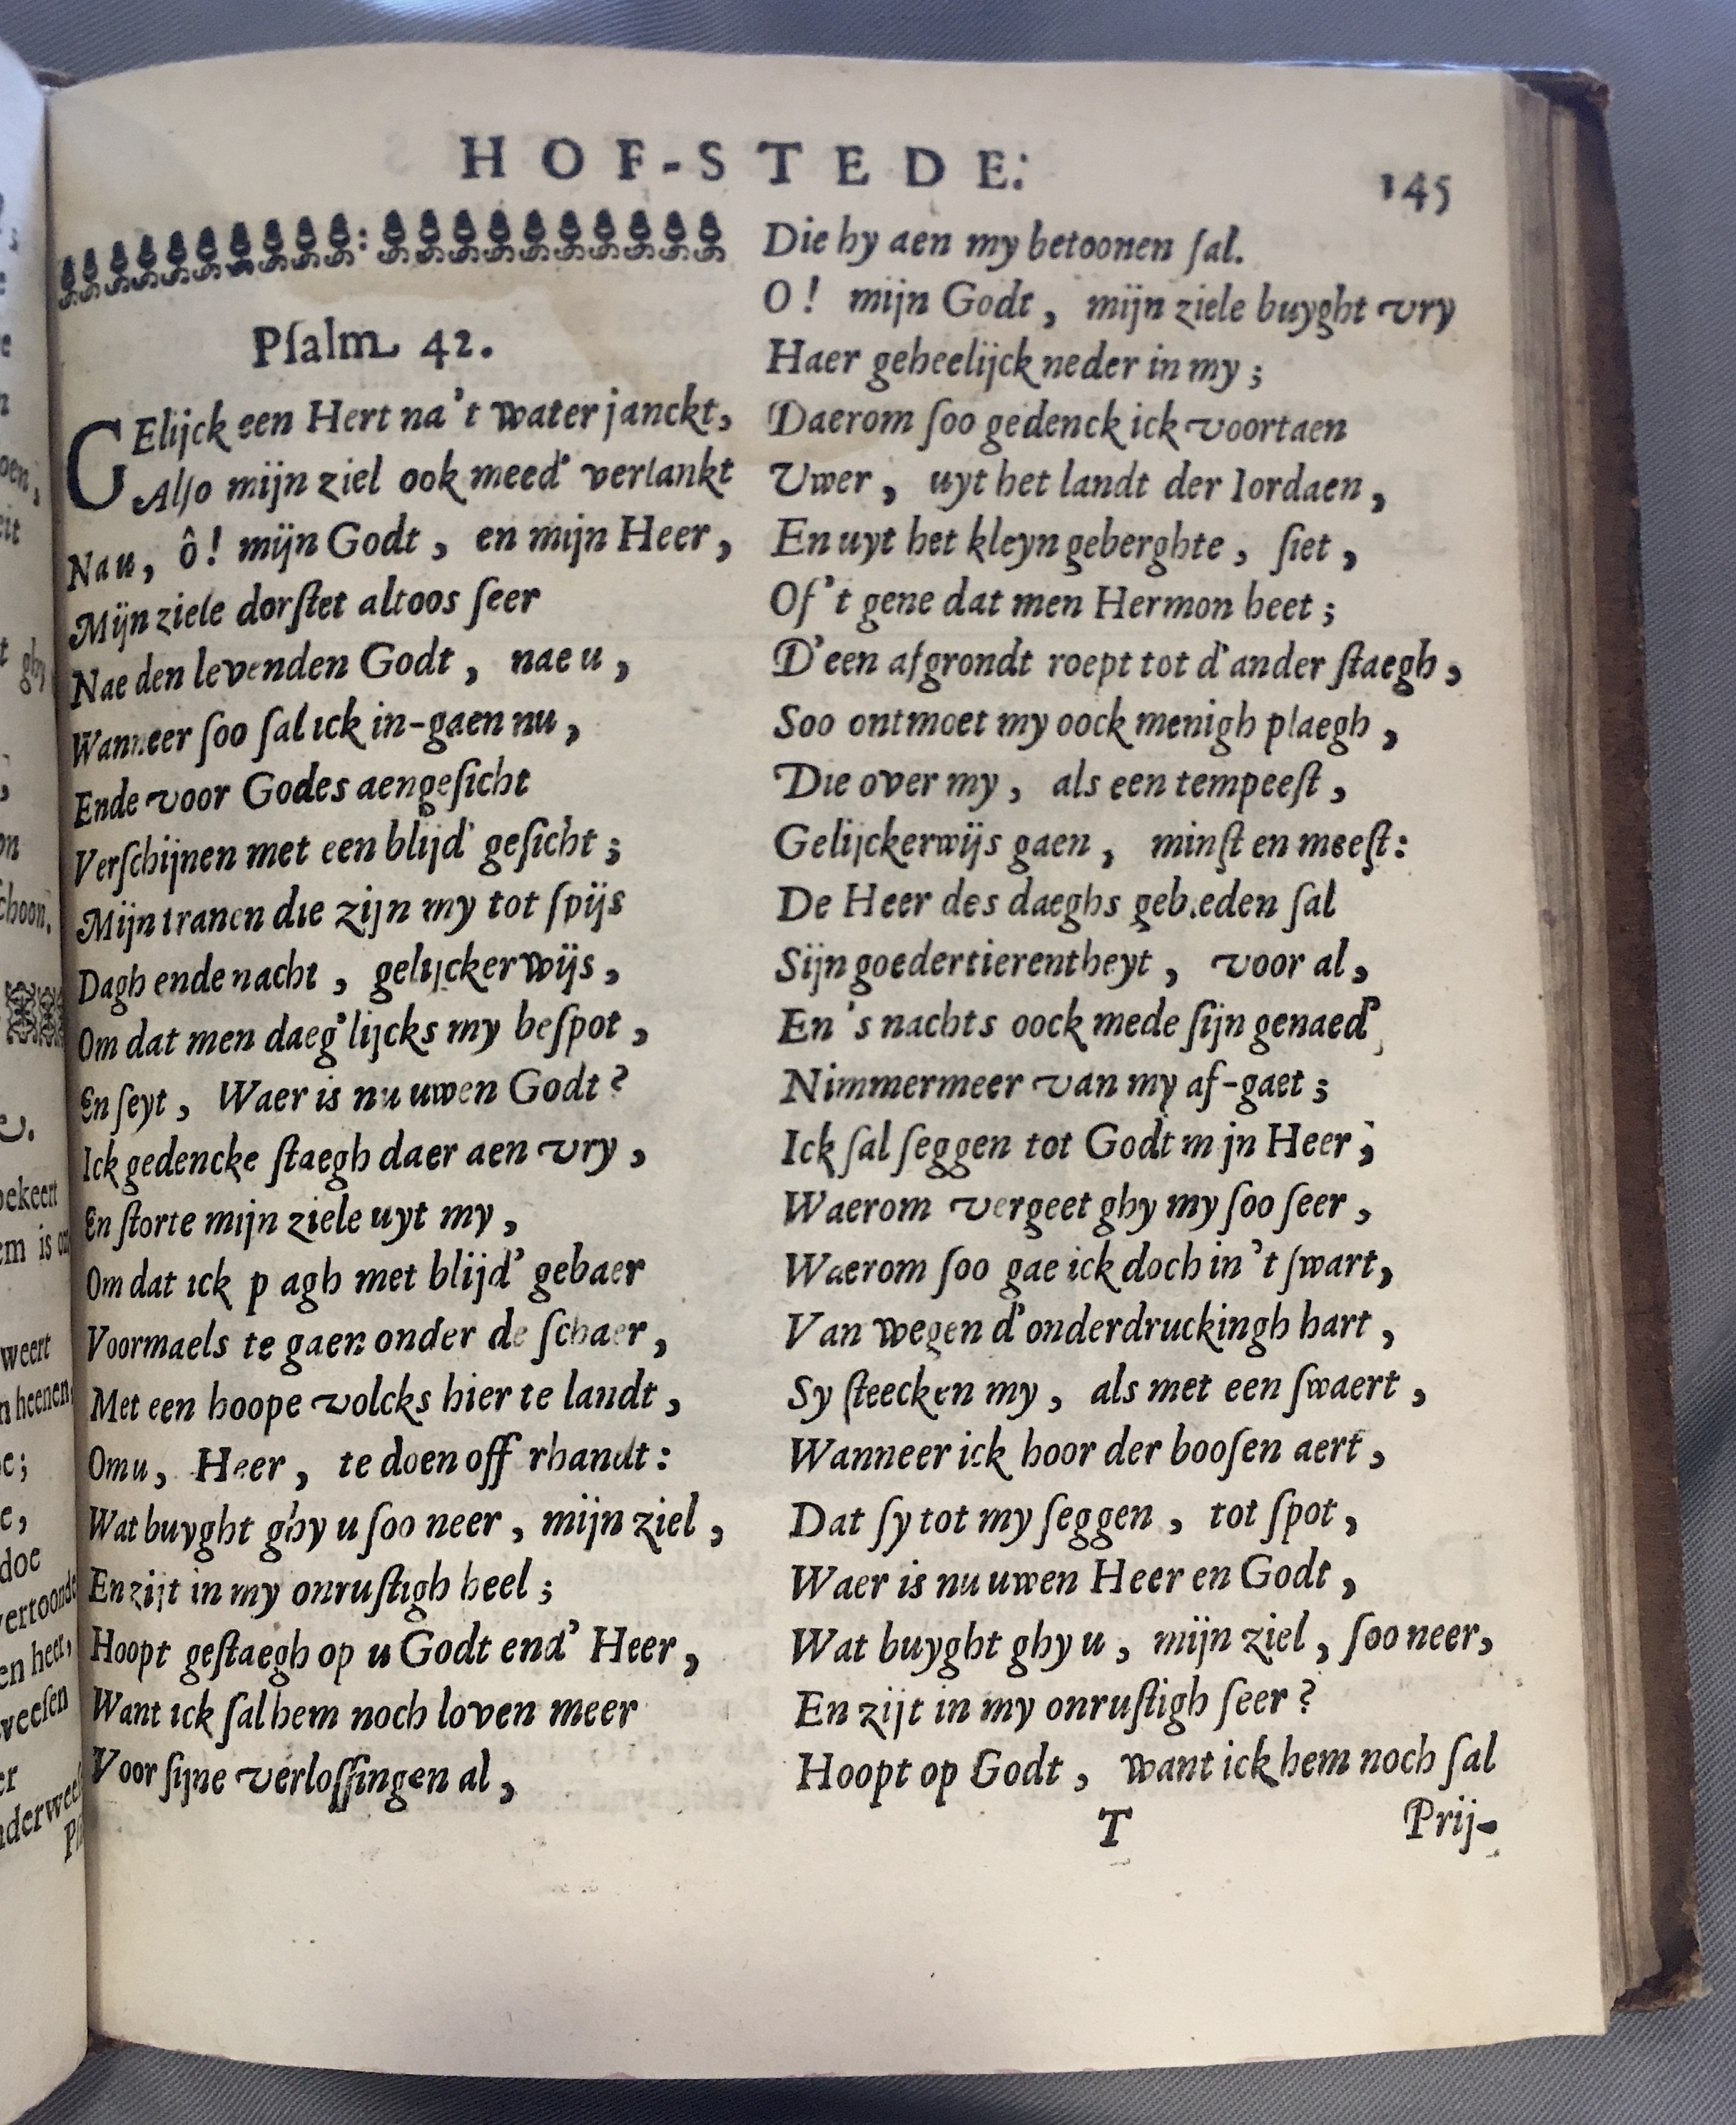 HOF-STEDE.
145
Pſalm 42.
GElijck een Hert na't water janckt,
Alſo mijn ziel ook meed' verlankt
Na u, ô! mijn Godt, en mijn Heer,
Mijn ziele dorſtet altoos ſeer
Nae den levenden Godt, nae u,
Wanneer ſoo ſal ick in-gaen nu,
Ende voor Godes aengeſicht
Verſchijnen met een blijd' geſicht;
Mijn tranen die zijn my tot ſpijs
Dagh ende nacht, gelijckerwijs,
Om dat men daeg'lijcks my beſpot,
En ſeyt, Waer is nu uwen Godt?
Ick gedencke ſtaegh daer aen vry,
En ſtorte mijn ziele uyt my,
Om dat ick p agh met blijd' gebaer
Voormaels te gaen onder de ſchaer,
Met een hoope volcks hier te landt,
Om u, Heer, te doen off rhandt:
Wat buyght ghy u ſoo neer, mijn ziel,
En zijt in my onruſtigh heel;
Hoopt geſtaegh op u Godt end' Heer,
Want ick ſal hem noch loven meer
Voor ſijne verloſſingen al,
Die hy aen my betoonen ſal.
O! mijn Godt, mijn ziele buyght vry
Haer geheelijck neder in my;
Daerom ſoo gedenck ick voortaen
Uwer, uyt het landt der Iordaen,
En uyt het kleyn geberghte, ſiet,
Of 't gene dat men Hermon heet;
D'een afgrondt roept tot d'ander ſtaegh,
Soo ontmoet my oock menigh plaegh,
Die over my, als een tempeeſt,
Gelijckerwijs gaen, minſt en meeſt:
De Heer des daeghs geb.eden ſal
Sijn goedertierentheyt, voor al,
En 's nachts oock mede ſijn genaed',
Nimmermeer van my af-gaet;
Ick ſal ſeggen tot Godt m jn Heer;
Waerom vergeet ghy my ſoo ſeer,
Waerom ſoo gae ick doch in 't ſwart,
Van wegen d'onderdruckingh hart,
Sy ſteecken my, als met een ſwaert,
Wanneer ick hoor der booſen aert,
Dat ſy tot my ſeggen, tot ſpot,
Waer is nu uwen Heer en Godt,
Wat buyght ghy u, mijn ziel, ſoo neer,
En zijt in my onruſtigh ſeer?
Hoopt op Godt, want ick hem noch ſal
T
Prij-